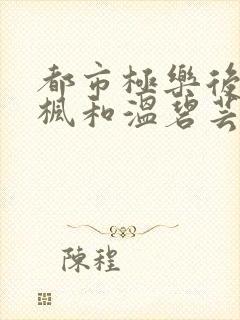 都市極樂後
楓和溫碧芸
陳程